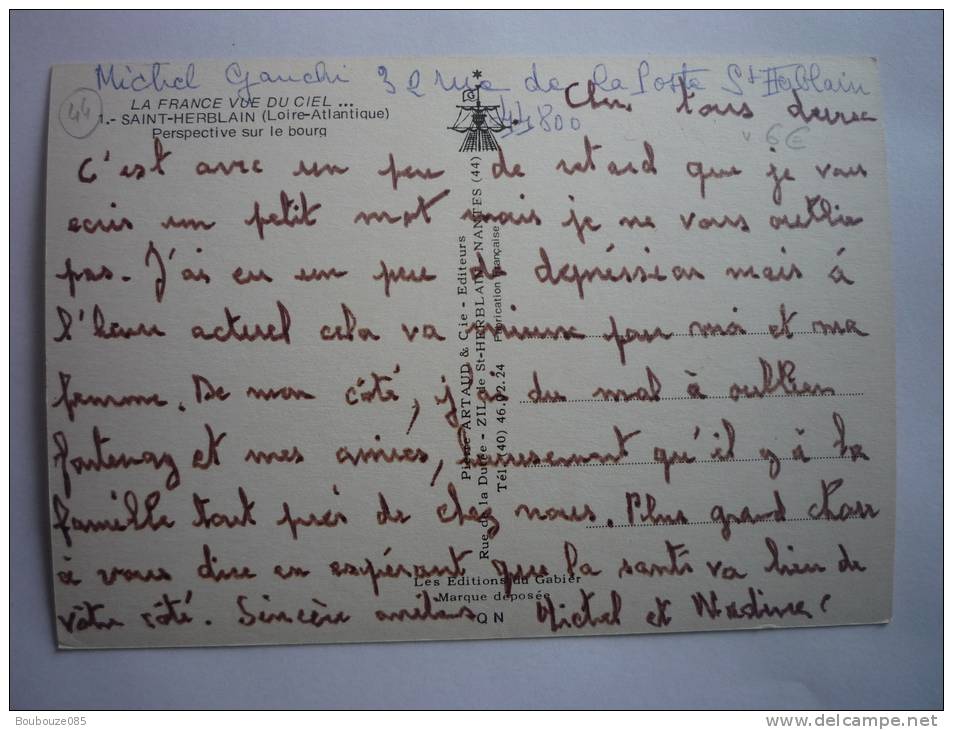 Michel Gauchi 32 rue de la Poste St Herblain
44800
44
LA FRANCE VUE DU CIEL ...
1.- SAINT-HERBLAIN (Loire-Atlantique)
Perspective sur le bourg
6€
Chers tous deux
C'est avec un peu de retard que je vous
ecris un petit mot mais je ne vous oublie
pas. J'ai eu un peu de depréssion mais à
l'heure actuel cela va mieux pour moi et ma
femme. De mon côté, j'ai du mal à oublier
Fontenay et mes amies, heureusement qu'il y à la
famille tout près de chez nous. Plus grand chose
à vous dire en espérant que la santé va bien de
vôtre côté. Sincère amitiés Michel et
Pierre ARTAUD & Cie - Editeurs
Rue de la Dutée - ZIL de St-HERBLAIN-NANTES (44)
Tél. (40) 46.02.24 Fabrication Française
Les Editions du Gabier
Marque déposée
Q N
Boubouze085